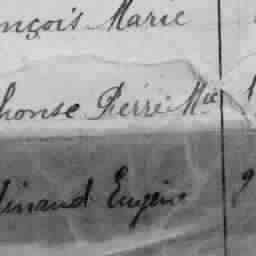 nçois Marie
honse Pierre Mie
dinand Eugène 9